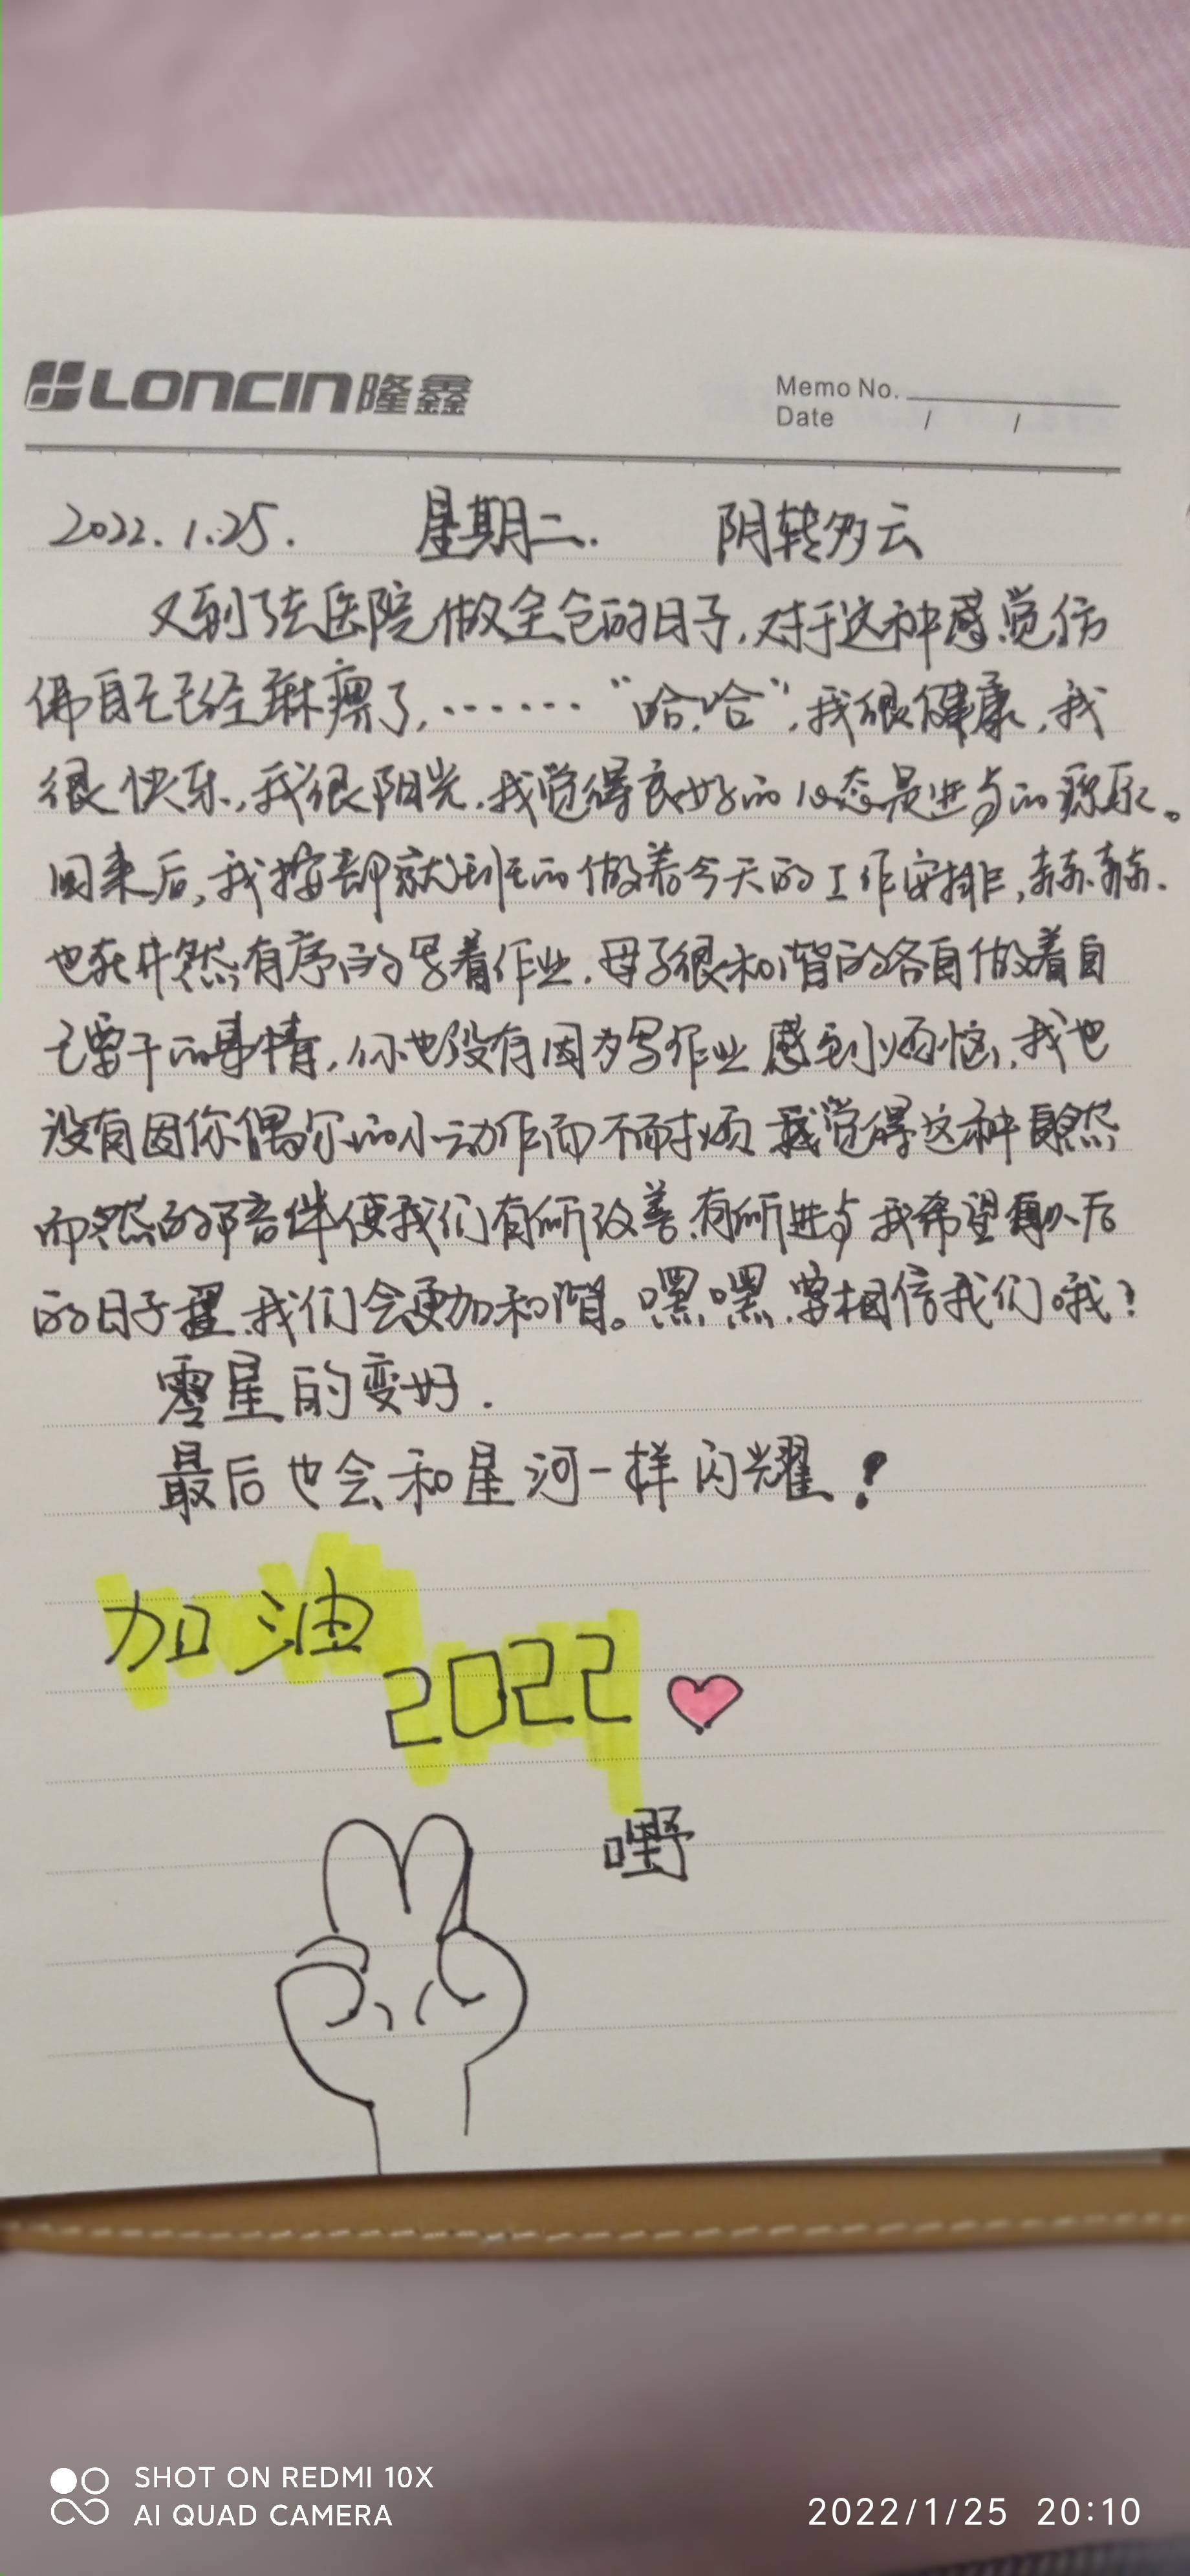 LONCIN隆鑫
Memo No.
Date / /
2022.1.25. 星期二. 阴转多云
又到了去医院做全仓的日子,对于这种感觉仿
佛自己已经麻痹了,……“哈哈”,我很健康,我
很快乐,我很阳光,我觉得良好的心态是进步的源泉。
回来后,我按部就班的做着今天的工作安排,赫赫.
也在井然有序的写着作业.母子很和谐的各自做着自
己要干的事情,你也没有因为写作业感到烦恼,我也
没有因你偶尔的小动作而不耐烦 我觉得这种自然
而然的陪伴使我们有所改善,有所进步 我希望以后
的日子里,我们会更加和谐。嘿嘿,要相信我们哦!
零星的变好.
最后也会和星河一样闪耀!
加油
2022
嘢
SHOT ON REDMI 10X
AI QUAD CAMERA
2022/1/25 20:10